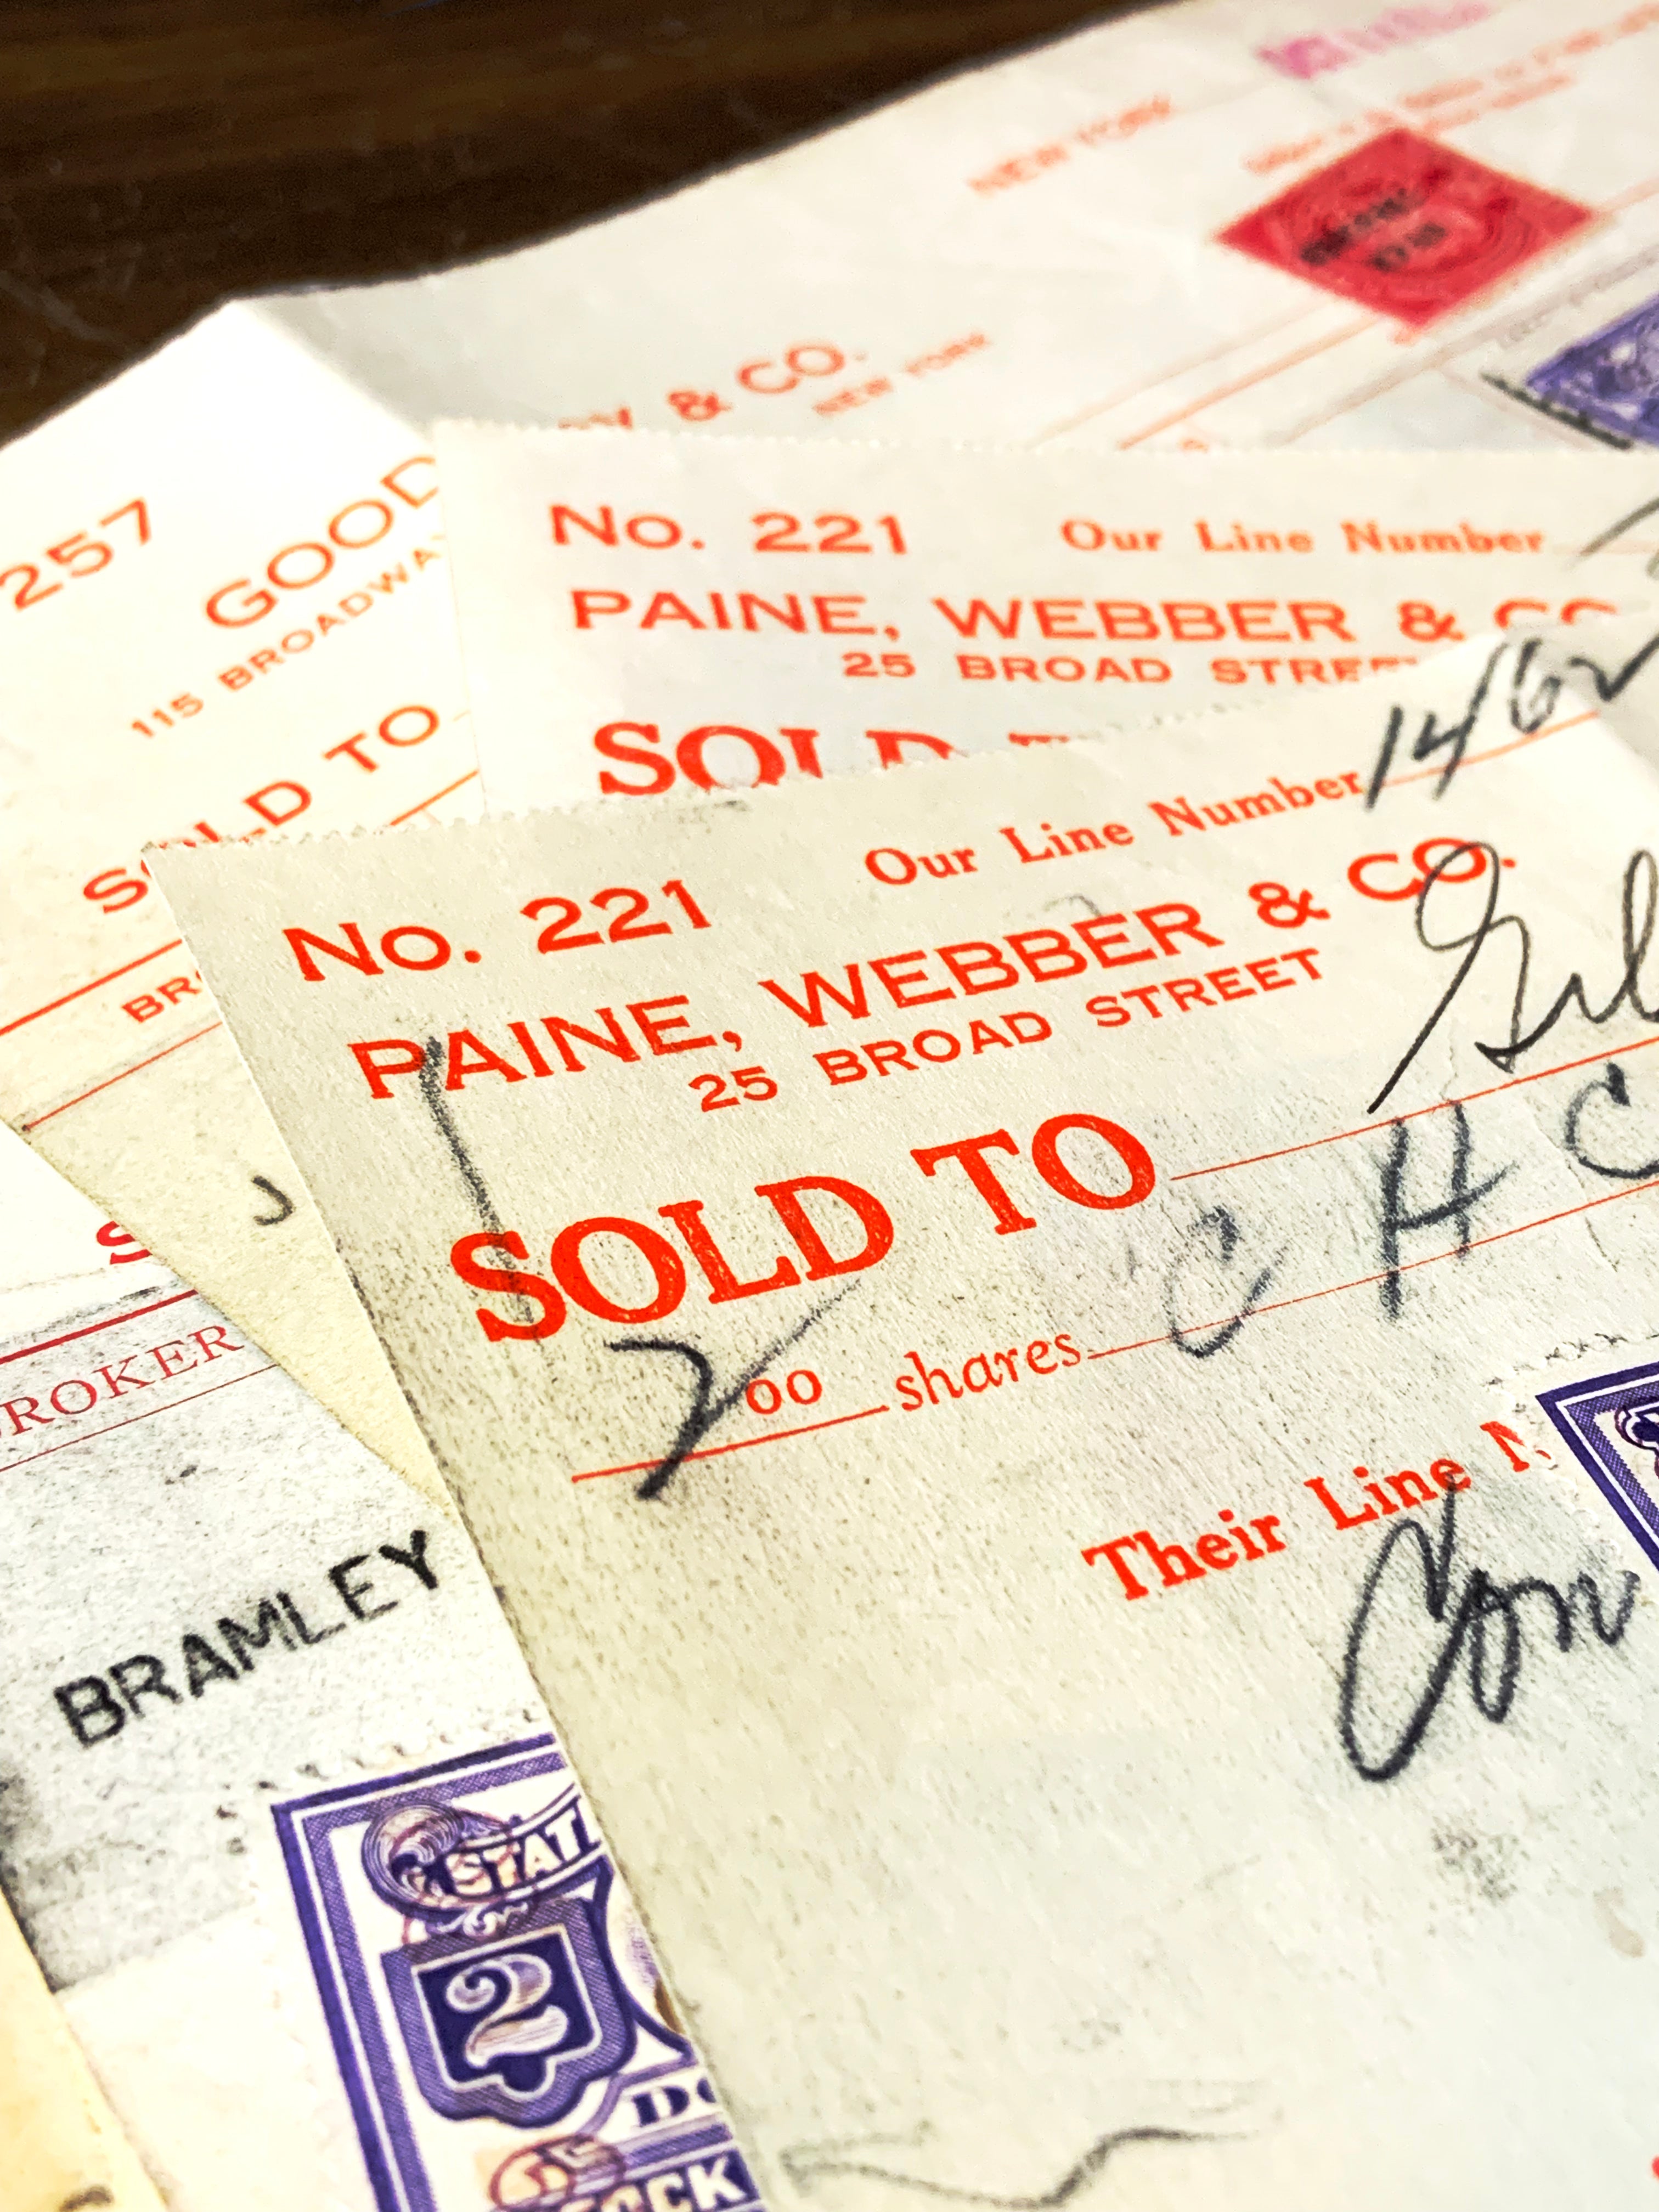 NEW YORK
& CO.
NEW YORK
257
GOOD
115 BROADWA
SOLD TO
BR
No. 221 Our Line Number
PAINE, WEBBER & CO
25 BROAD STREET
SOLD
No. 221 Our Line Number 1462
PAINE, WEBBER & CO.
25 BROAD STREET
SOLD TO
200 shares C H C
Their Line N
Com
J
S
ROKER
BRAMLEY
STATE
2
DO
STOCK